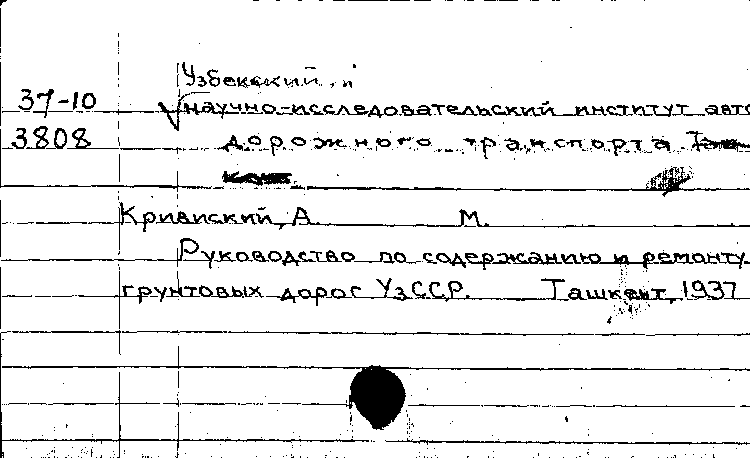 Узбекский, н
37-10 научно-исследовательский институт авто
3808 дорожного транспорта
Кривиский, А. М.
Руководство по содержанию и ремонту
грунтовых дорог УзССР. Ташкент, 1937